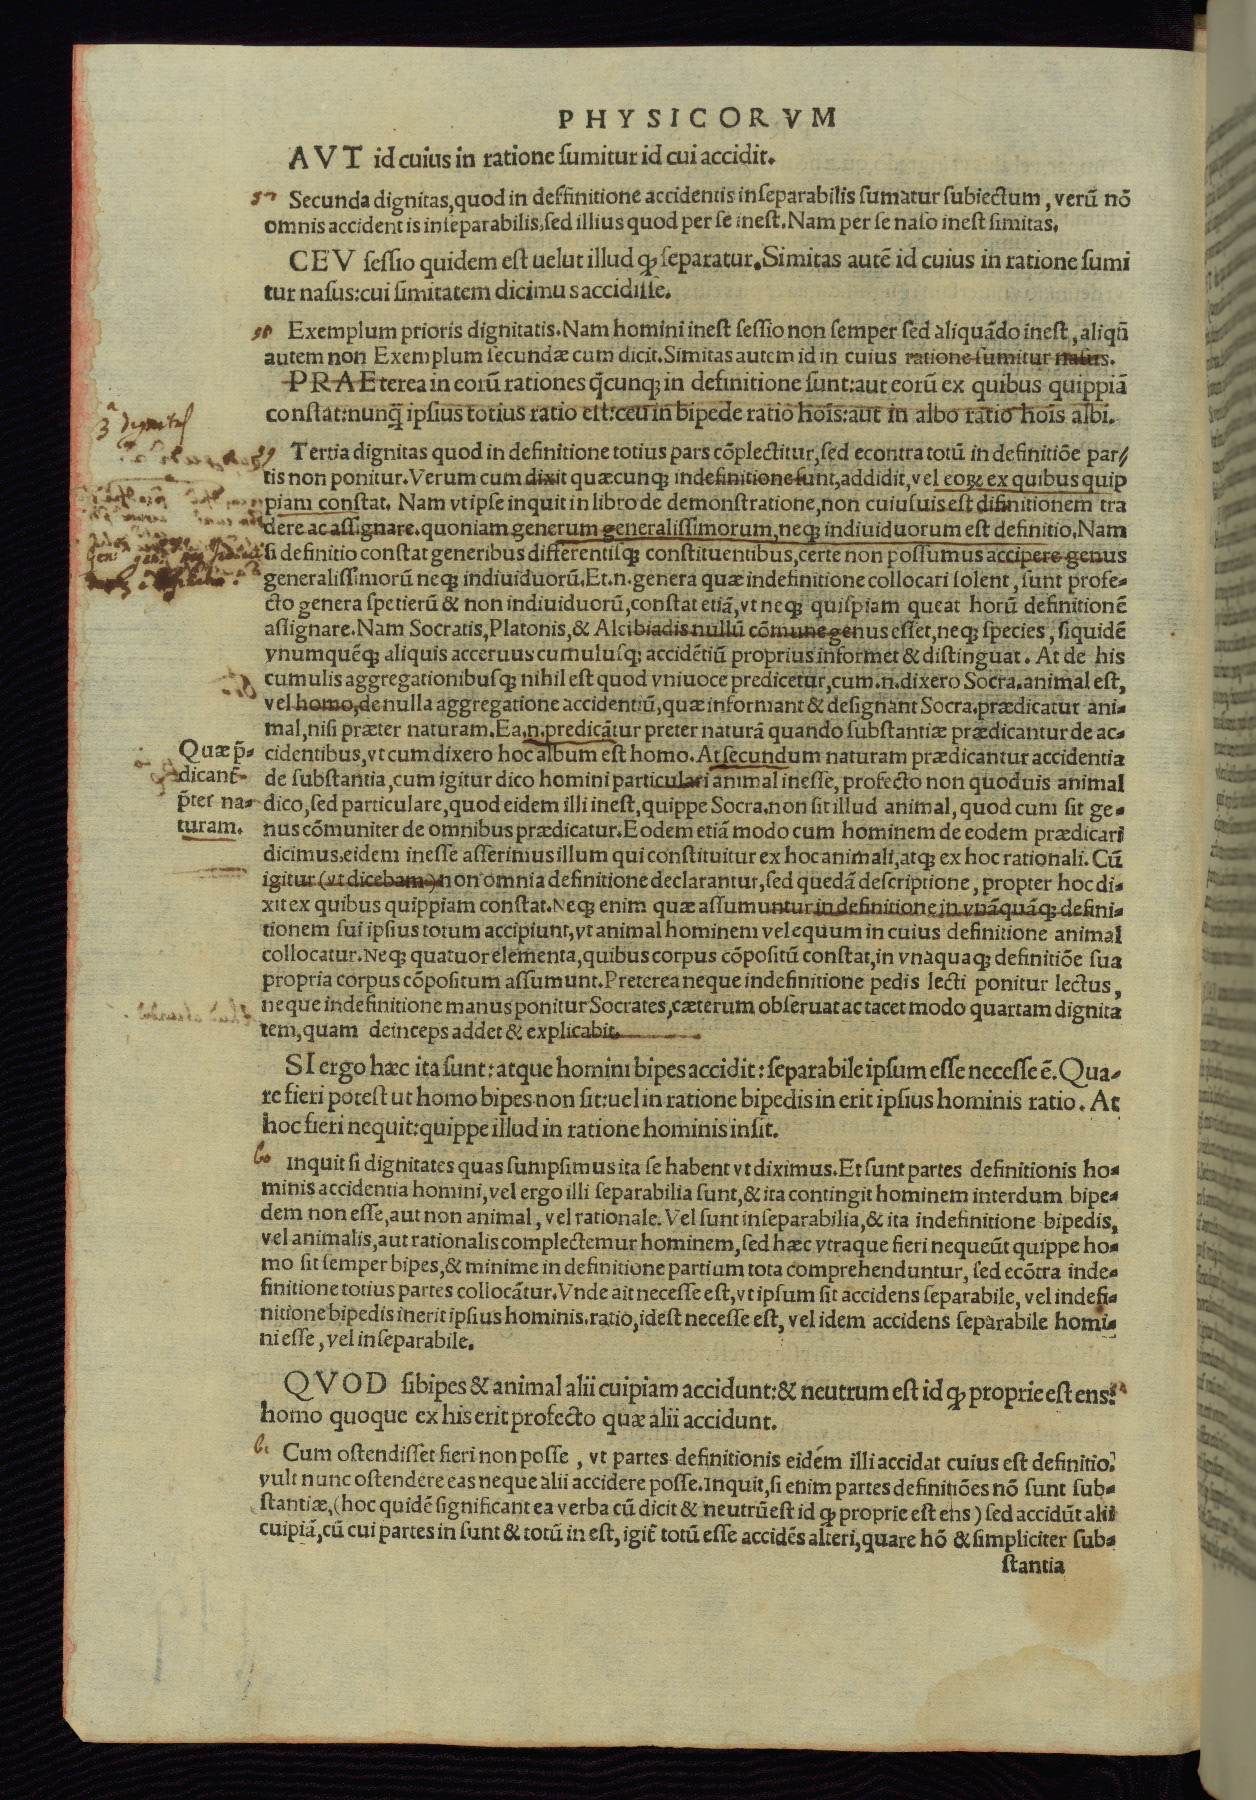 PHYSICORVM
AVT id cuius in ratione sumitur id cui accidit.
57 Secunda dignitas, quod in deffinitione accidentis inseparabilis sumatur subiectum, verū nō
omnis accidentis inseparabilis, sed illius quod per se inest. Nam per se naso inest simitas.
CEV sessio quidem est uelut illud ꝙ separatur. Simitas autē id cuius in ratione sumi
tur nasus: cui simitatem dicimus accidisse.
58 Exemplum prioris dignitatis. Nam homini inest sessio non semper sed aliquādo inest, aliqñ
autem non Exemplum secundæ cum dicit. Simitas autem id in cuius ratione sumitur nasus.
PRAEterea in eorū rationes q̄cunqꝫ in definitione sunt: aut eorū ex quibus quippiā
constat: nunq̄ ipsius totius ratio est: ceu in bipede ratio hoīs: aut in albo ratio hoīs albi.
3ᵃ dignitas
59 Tertia dignitas quod in definitione totius pars cōplectitur, sed econtra totū in definitiōe par-
tis non ponitur. Verum cum dixit quæcunqꝫ indefinitione sunt, addidit, vel eoꝝ ex quibus quip
piam constat. Nam vt ipse inquit in libro de demonstratione, non cuiusuis est difinitionem tra
dere ac assignare. quoniam generum generalissimorum, neqꝫ indiuiduorum est definitio. Nam
si definitio constat generibus differentisqꝫ constituentibus, certe non possumus accipere genus
generalissimorū neqꝫ indiuiduorū. Et.n. genera quæ indefinitione collocari solent, sunt profe-
cto genera spetierū & non indiuiduorū, constat etiā, vt neqꝫ quispiam queat horū definitionē
assignare. Nam Socratis, Platonis, & Alcibiadis nullū cōmune genus esset, neqꝫ species, siquidē
vnumquēqꝫ aliquis acceruus cumulusqꝫ accidētiū proprius informet & distinguat. At de his
cumulis aggregationibusqꝫ nihil est quod vniuoce predicetur, cum.n. dixero Socra. animal est,
vel homo, de nulla aggregatione accidentiū, quæ informant & designant Socra. prædicatur ani-
mal, nisi præter naturam. Ea.n. predicātur preter naturā quando substantiæ prædicantur de ac-
Quæ p̄-
dicant̄
p̄ter na-
turam.
cidentibus, vt cum dixero hoc album est homo. At secundum naturam prædicantur accidentia
de substantia, cum igitur dico homini particulari animal inesse, profecto non quoduis animal
dico, sed particulare, quod eidem illi inest, quippe Socra. non sit illud animal, quod cum sit ge-
nus cōmuniter de omnibus prædicatur. Eodem etiā modo cum hominem de eodem prædicari
dicimus, eidem inesse asserimus illum qui constituitur ex hoc animali, atqꝫ ex hoc rationali. Cū
igitur (vt dicebam) non omnia definitione declarantur, sed quedā descriptione, propter hoc di-
xit ex quibus quippiam constat. Neqꝫ enim quæ assumuntur in definitione in vnāquāqꝫ defini-
tionem sui ipsius totum accipiunt, vt animal hominem vel equum in cuius definitione animal
collocatur. Neqꝫ quatuor elementa, quibus corpus cōpositū constat, in vnaquaqꝫ definitiōe sua
propria corpus cōpositum assumunt. Preterea neque indefinitione pedis lecti ponitur lectus,
neque indefinitione manus ponitur Socrates, cæterum obseruat ac tacet modo quartam dignita
tem, quam deinceps addet & explicabit.
SI ergo hæc ita sunt: atque homini bipes accidit: separabile ipsum esse necesse ē. Qua-
re fieri potest ut homo bipes non sit: uel in ratione bipedis inerit ipsius hominis ratio. At
hoc fieri nequit: quippe illud in ratione hominis insit.
60 Inquit si dignitates quas sumpsimus ita se habent vt diximus. Et sunt partes definitionis ho-
minis accidentia homini, vel ergo illi separabilia sunt, & ita contingit hominem interdum bipe-
dem non esse, aut non animal, vel rationale. Vel sunt inseparabilia, & ita indefinitione bipedis,
vel animalis, aut rationalis complectemur hominem, sed hæc vtraque fieri nequeūt quippe ho-
mo sit semper bipes, & minime in definitione partium tota comprehenduntur, sed ecōtra inde-
finitione totius partes collocātur. Vnde ait necesse est, vt ipsum sit accidens separabile, vel indefi-
nitione bipedis inerit ipsius hominis. ratio, idest necesse est, vel idem accidens separabile homi-
ni esse, vel inseparabile.
QVOD si bipes & animal alii cuipiam accidunt: & neutrum est id ꝙ proprie est ens:
homo quoque ex his erit profecto quæ alii accidunt.
61 Cum ostendisset fieri non posse, vt partes definitionis eidem illi accidat cuius est definitio.
vult nunc ostendere eas neque alii accidere posse. Inquit, si enim partes definitiōes nō sunt sub-
stantiæ, (hoc quidē significant ea verba cū dicit & neutrū est id ꝙ proprie est ens) sed accidūt alii
cuipiā, cū cui partes in sunt & totū in est, igit̄ totū esse accidēs alteri, quare hō & simpliciter sub-
stantia